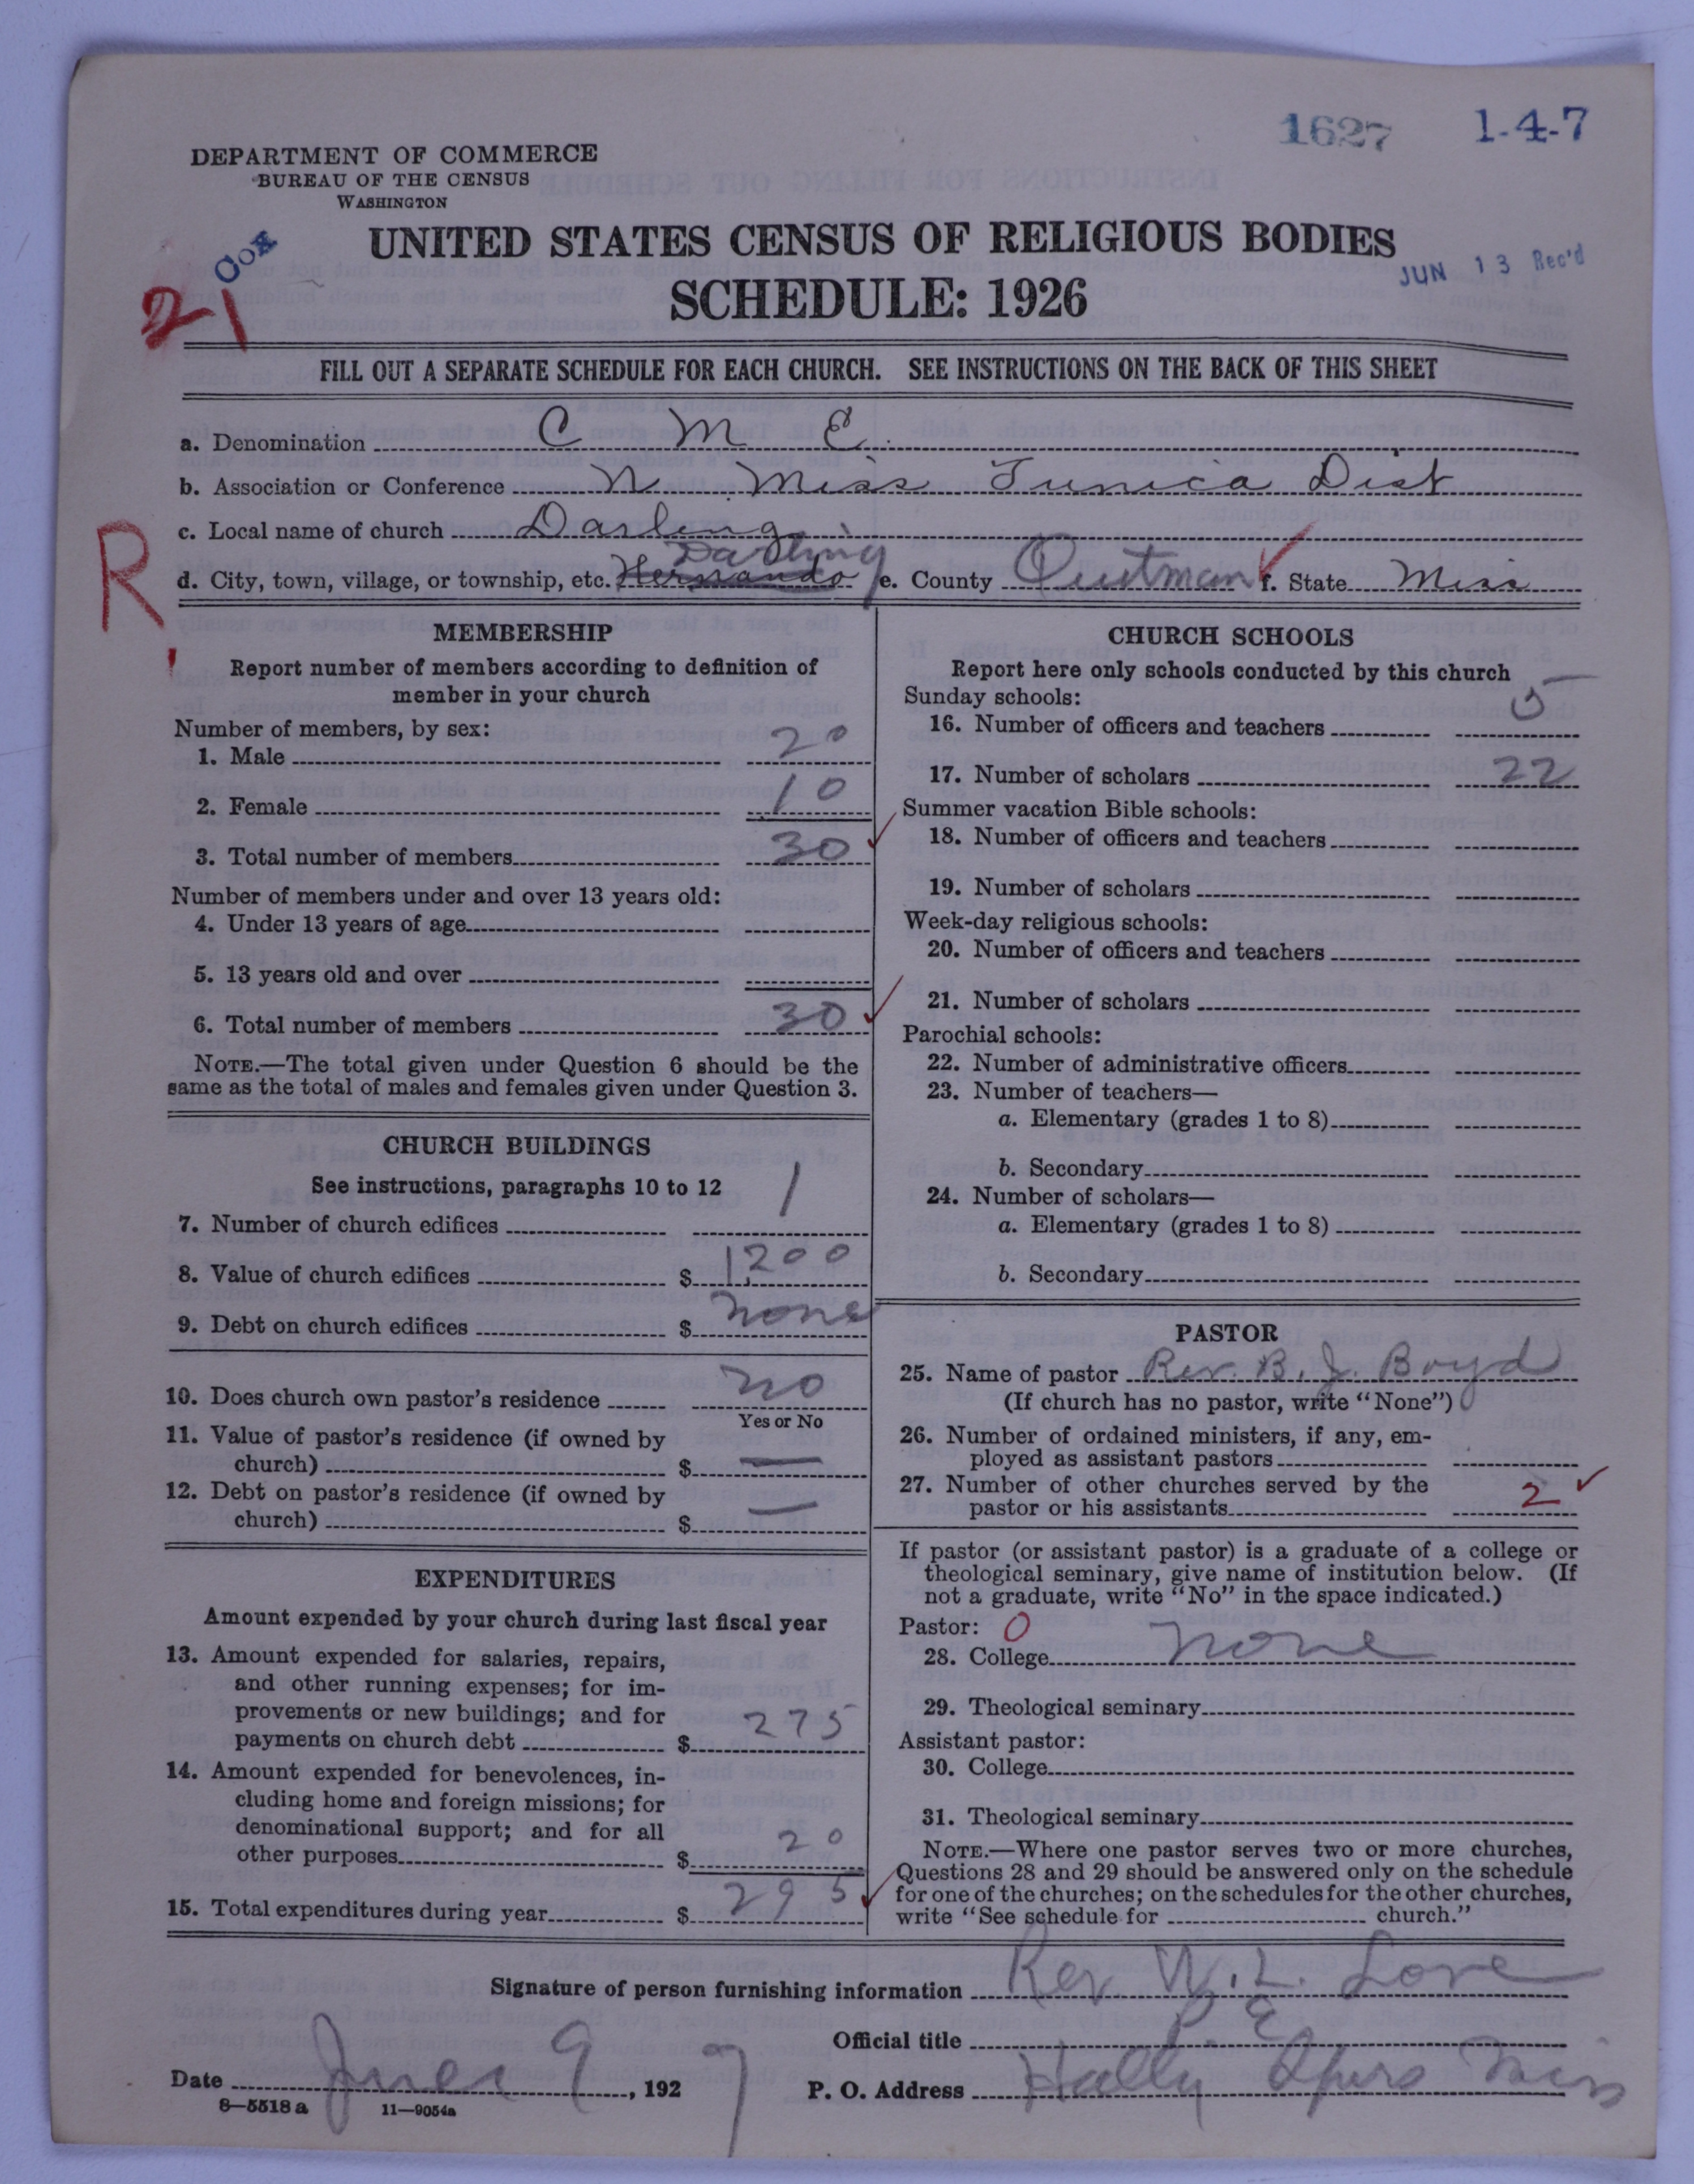 1627 1-4-7
DEPARTMENT OF COMMERCE
BUREAU OF THE CENSUS
WASHINGTON
UNITED STATES CENSUS OF RELIGIOUS BODIES
SCHEDULE: 1926
JUN 13 Rec'd
Cox
21
FILL OUT A SEPARATE SCHEDULE FOR EACH CHURCH. SEE INSTRUCTIONS ON THE BACK OF THIS SHEET
a. Denomination C M E
b. Association or Conference N Miss Tunica Dist
c. Local name of church Darling
R
d. City, town, village, or township, etc. Hernando Darling e. County Quitman f. State Miss
MEMBERSHIP
Report number of members according to definition of
member in your church
Number of members, by sex:
1. Male 20
2. Female 10
3. Total number of members 30
Number of members under and over 13 years old:
4. Under 13 years of age
5. 13 years old and over
6. Total number of members 30
NOTE.—The total given under Question 6 should be the
same as the total of males and females given under Question 3.
CHURCH BUILDINGS
See instructions, paragraphs 10 to 12
7. Number of church edifices 1
8. Value of church edifices $ 1,200
9. Debt on church edifices $ none
10. Does church own pastor's residence no
Yes or No
11. Value of pastor's residence (if owned by
church) $ —
12. Debt on pastor's residence (if owned by
church) $ —
EXPENDITURES
Amount expended by your church during last fiscal year
13. Amount expended for salaries, repairs,
and other running expenses; for im-
provements or new buildings; and for
payments on church debt $ 275
14. Amount expended for benevolences, in-
cluding home and foreign missions; for
denominational support; and for all
other purposes $ 20
15. Total expenditures during year $ 295
CHURCH SCHOOLS
Report here only schools conducted by this church
Sunday schools:
16. Number of officers and teachers 5
17. Number of scholars 22
Summer vacation Bible schools:
18. Number of officers and teachers
19. Number of scholars
Week-day religious schools:
20. Number of officers and teachers
21. Number of scholars
Parochial schools:
22. Number of administrative officers
23. Number of teachers—
a. Elementary (grades 1 to 8)
b. Secondary
24. Number of scholars—
a. Elementary (grades 1 to 8)
b. Secondary
PASTOR
25. Name of pastor Rev. B. J. Boyd
(If church has no pastor, write "None")
26. Number of ordained ministers, if any, em-
ployed as assistant pastors
27. Number of other churches served by the
pastor or his assistants 2
If pastor (or assistant pastor) is a graduate of a college or
theological seminary, give name of institution below. (If
not a graduate, write "No" in the space indicated.)
Pastor: 0
28. College none
29. Theological seminary
Assistant pastor:
30. College
31. Theological seminary
NOTE.—Where one pastor serves two or more churches,
Questions 28 and 29 should be answered only on the schedule
for one of the churches; on the schedules for the other churches,
write "See schedule for church."
Signature of person furnishing information Rev. W. L. Love
Official title P. E
Date June 9, 1927 P. O. Address Holly Miss
8—5518a 11—9054a